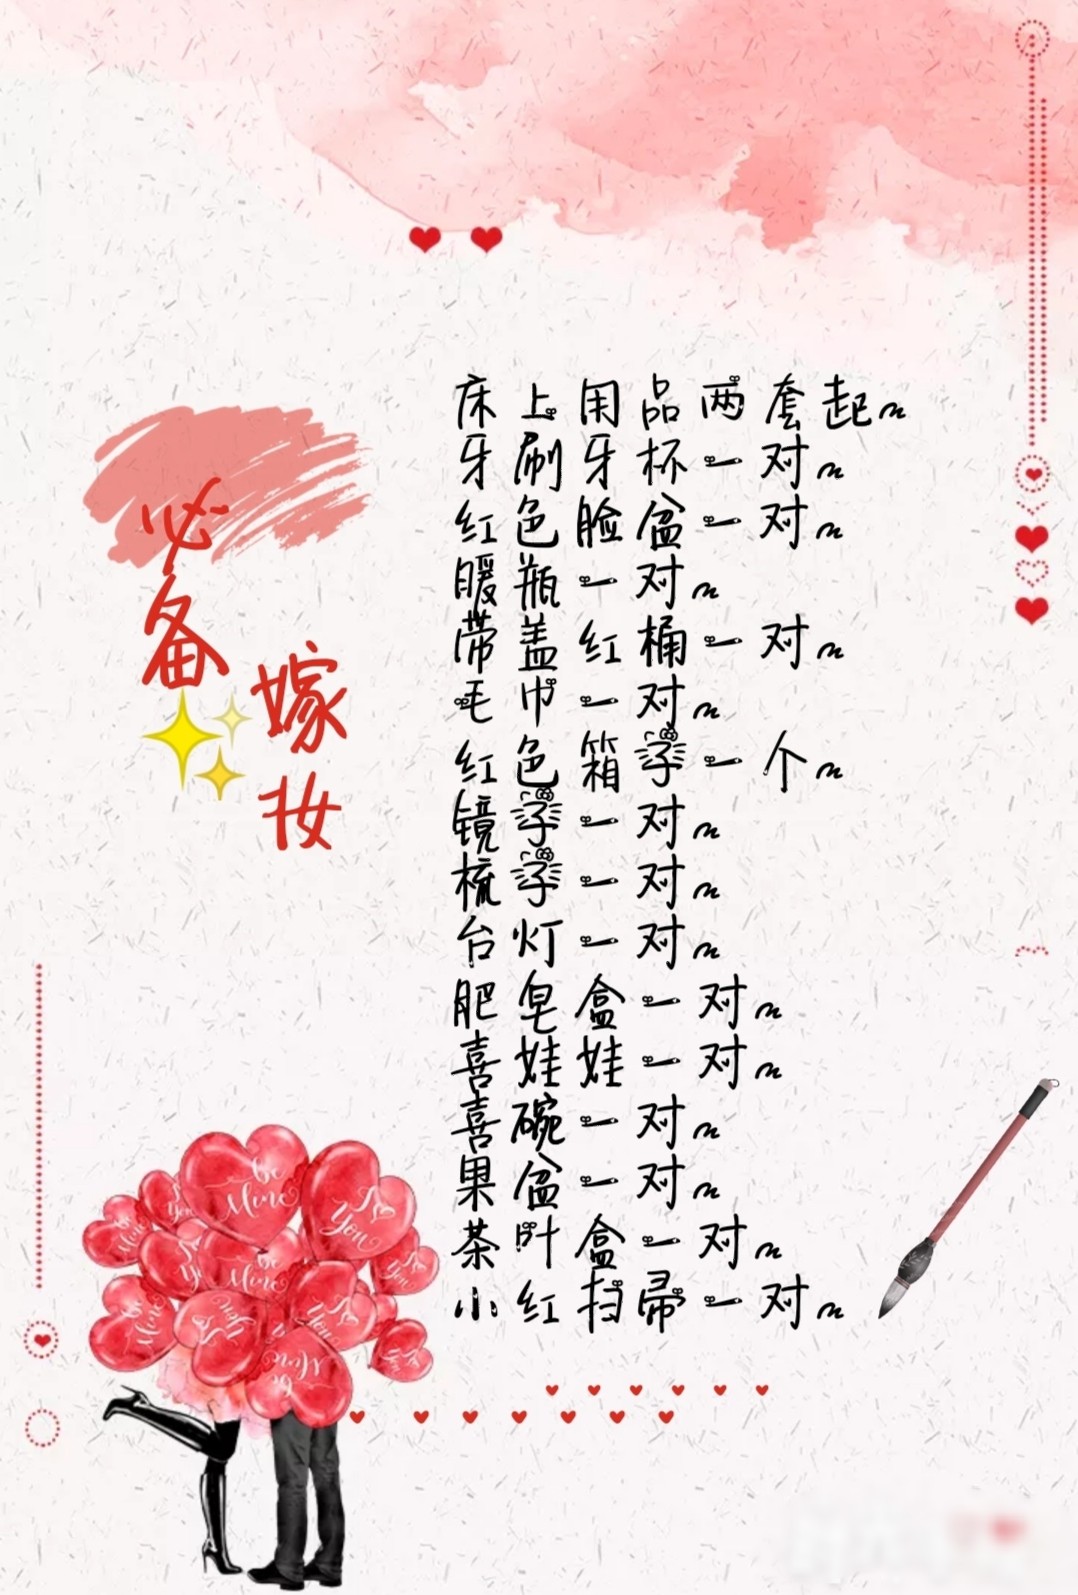 必备
嫁妆
床上用品两套起~
牙刷牙杯一对~
红色脸盆一对~
暖瓶一对~
带盖红桶一对~
毛巾一对~
红色箱子一个~
镜子一对~
梳子一对~
台灯一对~
肥皂盒一对~
喜娃娃一对~
喜碗一对~
果盆一对~
茶叶盒一对~
小红扫帚一对~
Be Mine
I ♥ You